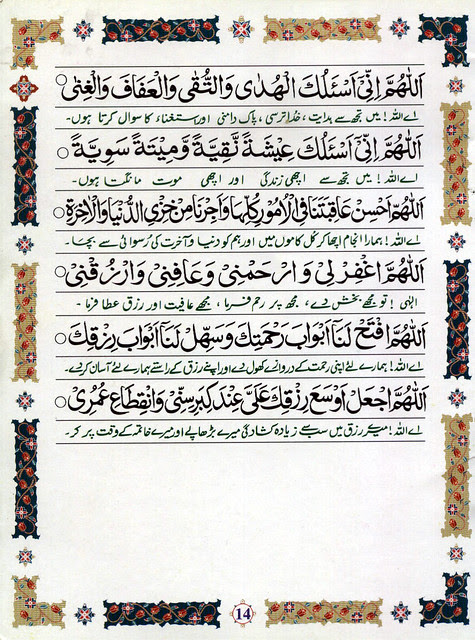 اَللّٰهُمَّ اِنِّیْ اَسْئَلُكَ الْهُدٰی وَالتُّقٰی وَالْعَفَافَ وَالْغِنٰی
اے اللہ! میں تجھ سے ہدایت، خدا ترسی، پاک دامنی اور استغناء کا سوال کرتا ہوں۔
اَللّٰهُمَّ اِنِّیْ اَسْئَلُكَ عِیْشَةً نَّقِیَّةً وَّمِیْتَةً سَوِیَّةً
اے اللہ! میں تجھ سے اچھی زندگی اور اچھی موت مانگتا ہوں۔
اَللّٰهُمَّ اَحْسِنْ عَاقِبَتَنَا فِی الْاُمُوْرِ كُلِّهَا وَاَجِرْنَا مِنْ خِزْیِ الدُّنْیَا وَالْاٰخِرَةِ
اے اللہ! ہمارا انجام اچھا کر کل کاموں میں اور ہم کو دنیا و آخرت کی رسوائی سے بچا۔
اَللّٰهُمَّ اغْفِرْ لِیْ وَارْحَمْنِیْ وَعَافِنِیْ وَارْزُقْنِیْ
الٰہی! تو مجھے بخش دے، مجھ پر رحم فرما، مجھے عافیت اور رزق عطا فرما۔
اَللّٰهُمَّ افْتَحْ لَنَا اَبْوَابَ رَحْمَتِكَ وَسَهِّلْ لَنَا اَبْوَابَ رِزْقِكَ
اے اللہ! ہمارے لئے اپنی رحمت کے دروازے کھول دے اور اپنے رزق کے راستے ہمارے لئے آسان کر دے۔
اَللّٰهُمَّ اجْعَلْ اَوْسَعَ رِزْقِكَ عَلَیَّ عِنْدَ كِبَرِ سِنِّیْ وَانْقِطَاعِ عُمُرِیْ
اے اللہ! میرے رزق میں سب سے زیادہ کشادگی میرے بڑھاپے اور میرے خاتمہ کے وقت پر کر۔
14